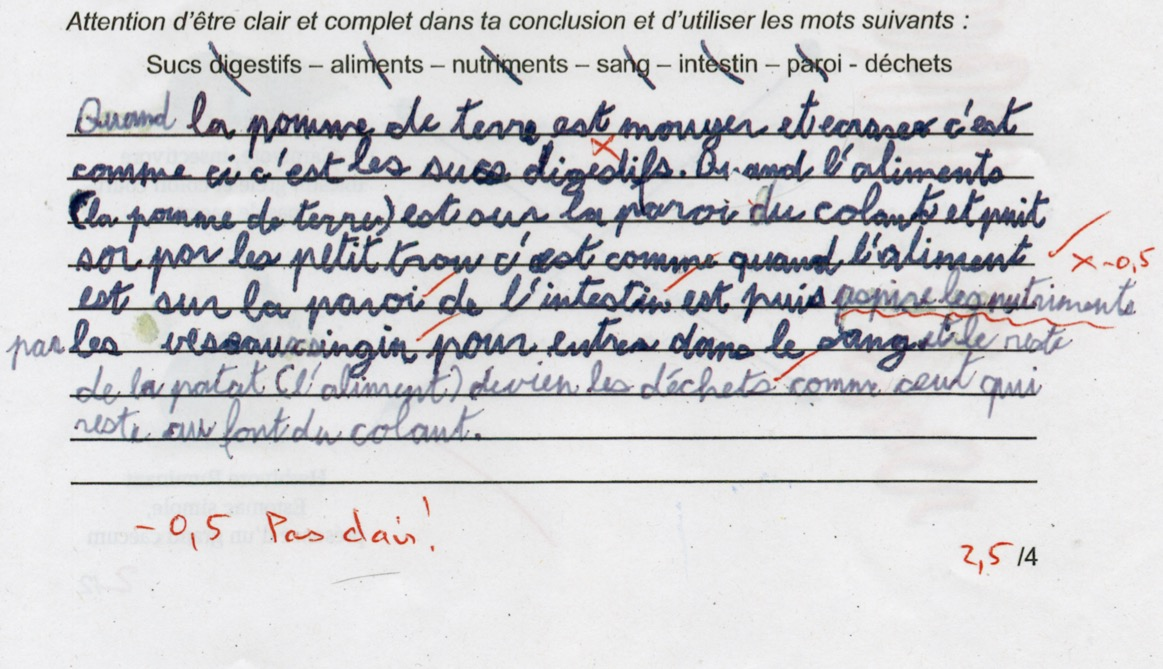 Attention d'être clair et complet dans ta conclusion et d'utiliser les mots suivants :
Sucs digestifs – aliments – nutriments – sang – intestin – paroi - déchets
Quand la pomme de terre est mouyer et ecraser c'est
comme ci c'est les sucs digestifs. Quand l'aliments
(la pomme de terre) est sur la paroi du colant et puit
sor par les petit trou c'est comme quand l'aliment
x -0,5
est sur la paroi de l'intestin est puis aspire les nutriments
par les veseaux singin pour entrer dans le sang et le reste
de la patat (l'aliment) devien les déchets comme ceut qui
reste au font du colant.
-0,5 Pas clair!
2,5 /4